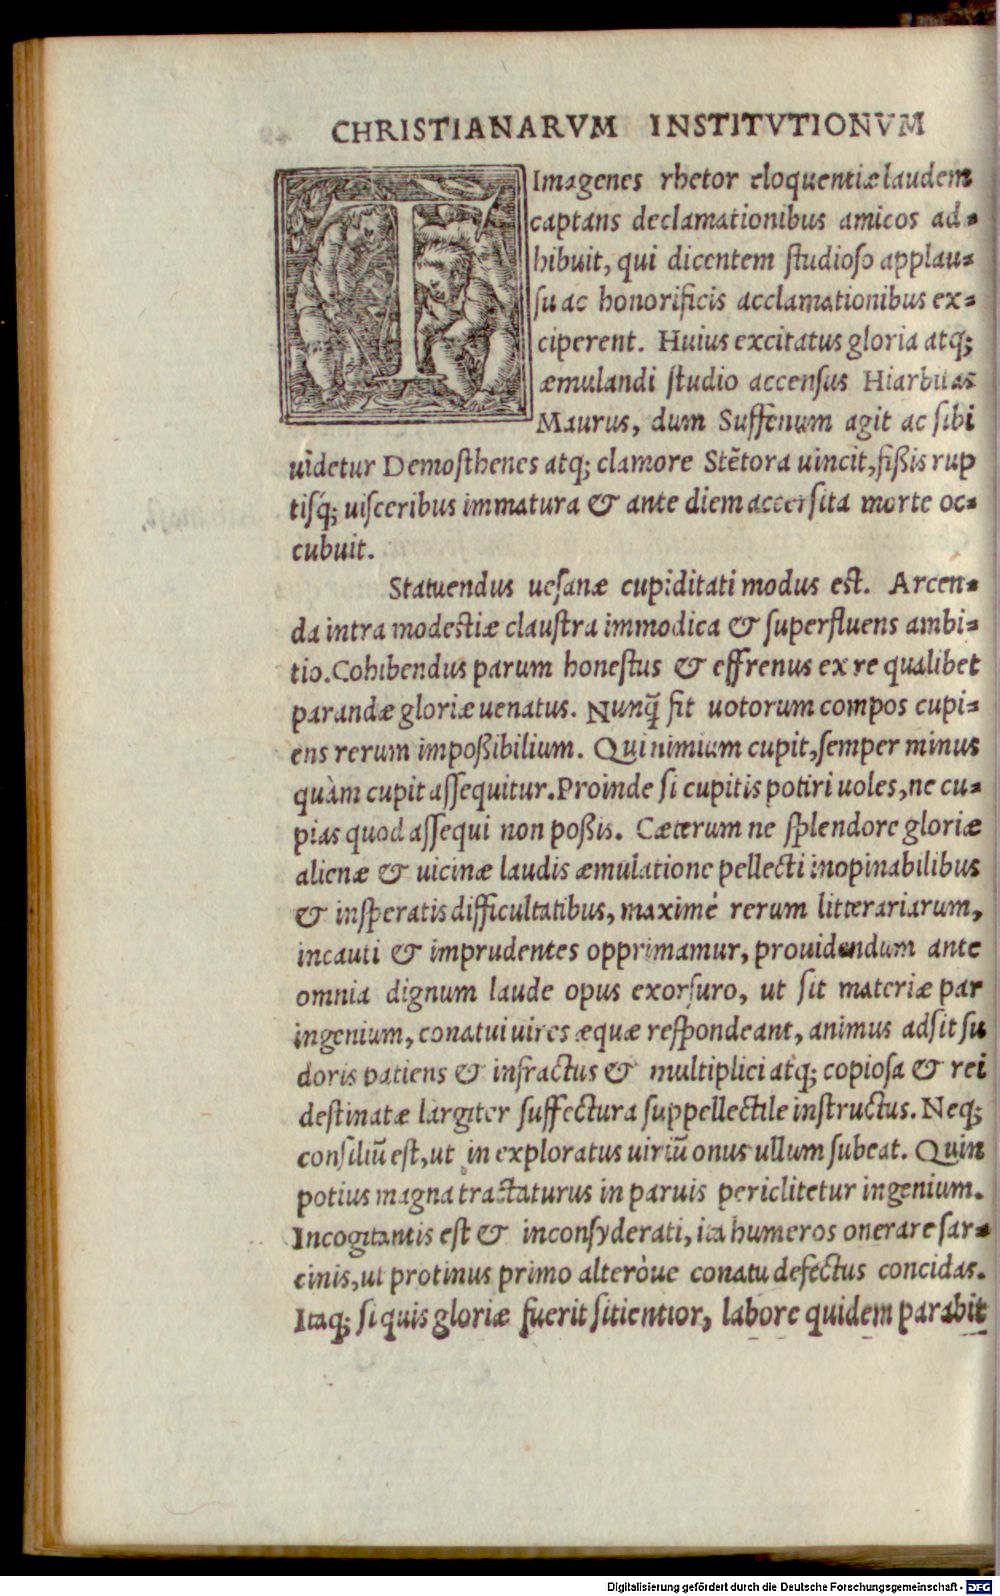 CHRISTIANARVM INSTITVTIONVM
TImagenes rhetor eloquentiæ laudem
captans declamationibus amicos ad-
hibuit, qui dicentem studioso applau-
su ac honorificis acclamationibus ex-
ciperent. Huius excitatus gloria atq;
æmulandi studio accensus Hiarbitas
Maurus, dum Suffenum agit ac sibi
uidetur Demosthenes atq; clamore Stẽtora uincit, fißis rup
tisq́; uisceribus immatura & ante diem accersita morte oc-
cubuit.
Statuendus uesanæ cupiditati modus est. Arcen-
da intra modestiæ claustra immodica & superfluens ambi-
tio. Cohibendus parum honestus & effrenus ex re qualibet
parandæ gloriæ uenatus. Nunq̃ fit uotorum compos cupi-
ens rerum impoßibilium. Qui nimium cupit, semper minus
quàm cupit assequitur. Proinde si cupitis potiri uoles, ne cu-
pias quod assequi non poßis. Cæterum ne splendore gloriæ
alienæ & uicinæ laudis æmulatione pellecti inopinabilibus
& insperatis difficultatibus, maximè rerum litterariarum,
incauti & imprudentes opprimamur, prouidendum ante
omnia dignum laude opus exorsuro, ut sit materiæ par
ingenium, conatui uires æquæ respondeant, animus adsit su
doris patiens & infractus & multiplici atq; copiosa & rei
destinatæ largiter suffectura suppellectile instructus. Neq;
consiliũ est, ut in exploratus uiriũ onus ullum subeat. Quin
potius magna tractaturus in paruis periclitetur ingenium.
Incogitantis est & inconsyderati, ita humeros onerare sar-
cinis, ut protinus primo alteròue conatu defectus concidas.
Itaq; si quis gloriæ fuerit sitientior, labore quidem parabit
Digitalisierung gefördert durch die Deutsche Forschungsgemeinschaft - DFG